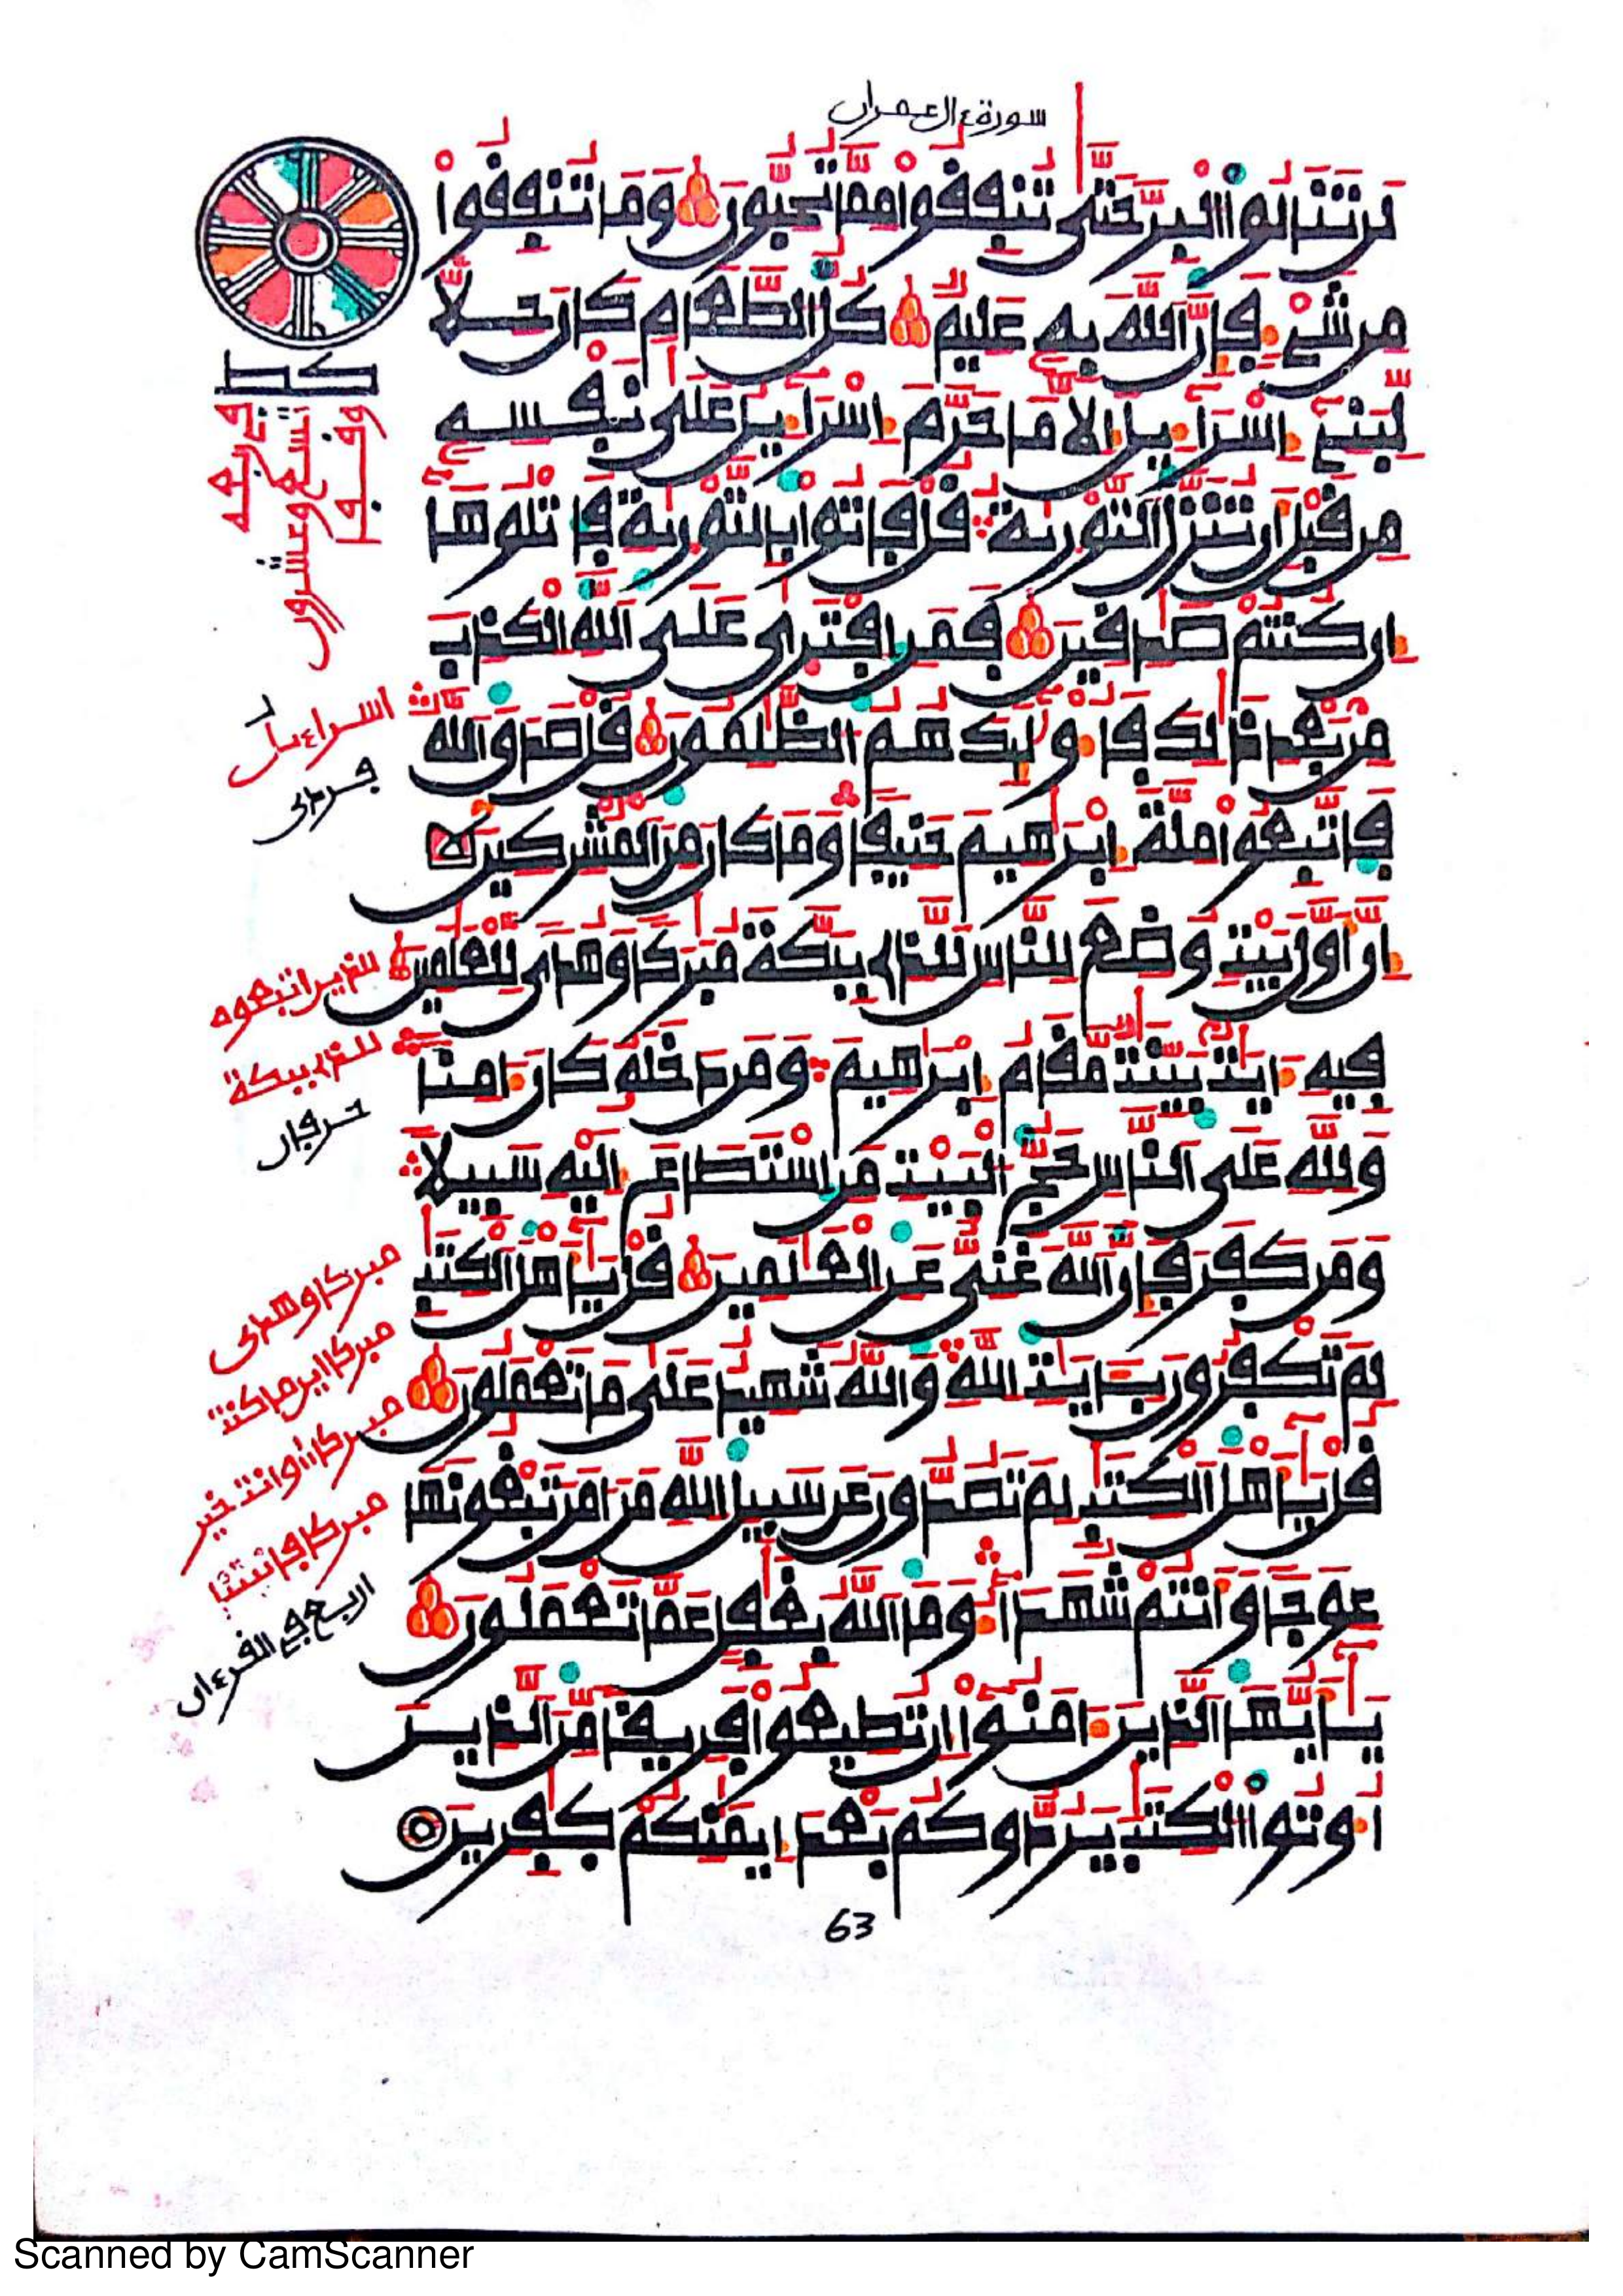 سورة ءال عمران
لن تنالوا البر حتى تنفقوا مما تحبون وما تنفقوا
من شيء فإن الله به عليم كل الطعام كان حلا
لبني إسراءيل إلا ما حرم إسراءيل على نفسه
من قبل أن تنزل التورية قل فأتوا بالتورية فاتلوها
إن كنتم صدقين فمن افترى على الله الكذب
من بعد ذلك فأولئك هم الظلمون قل صدق الله
فاتبعوا ملة إبرهيم حنيفا وما كان من المشركين
إن أول بيت وضع للناس للذي ببكة مبركا وهدى للعلمين
فيه ءايت بينت مقام إبرهيم ومن دخله كان ءامنا
ولله على الناس حج البيت من استطاع إليه سبيلا
ومن كفر فإن الله غني عن العلمين قل يأهل الكتب
لم تكفرون بءايت الله والله شهيد على ما تعملون
قل يأهل الكتب لم تصدون عن سبيل الله من ءامن تبغونها
عوجا وأنتم شهداء وما الله بغفل عما تعملون
يأيها الذين ءامنوا إن تطيعوا فريقا من الذين
أوتوا الكتب يردوكم بعد إيمنكم كفرين
اسراءيل
فردى
للذين اتبعوه
للذي ببكة
حرفان
مبركا وهدى
مبركا اين ما كنت
مبركا وانت خير
مبركا فانبتنا
اربع في القرءان
63
Scanned by CamScanner